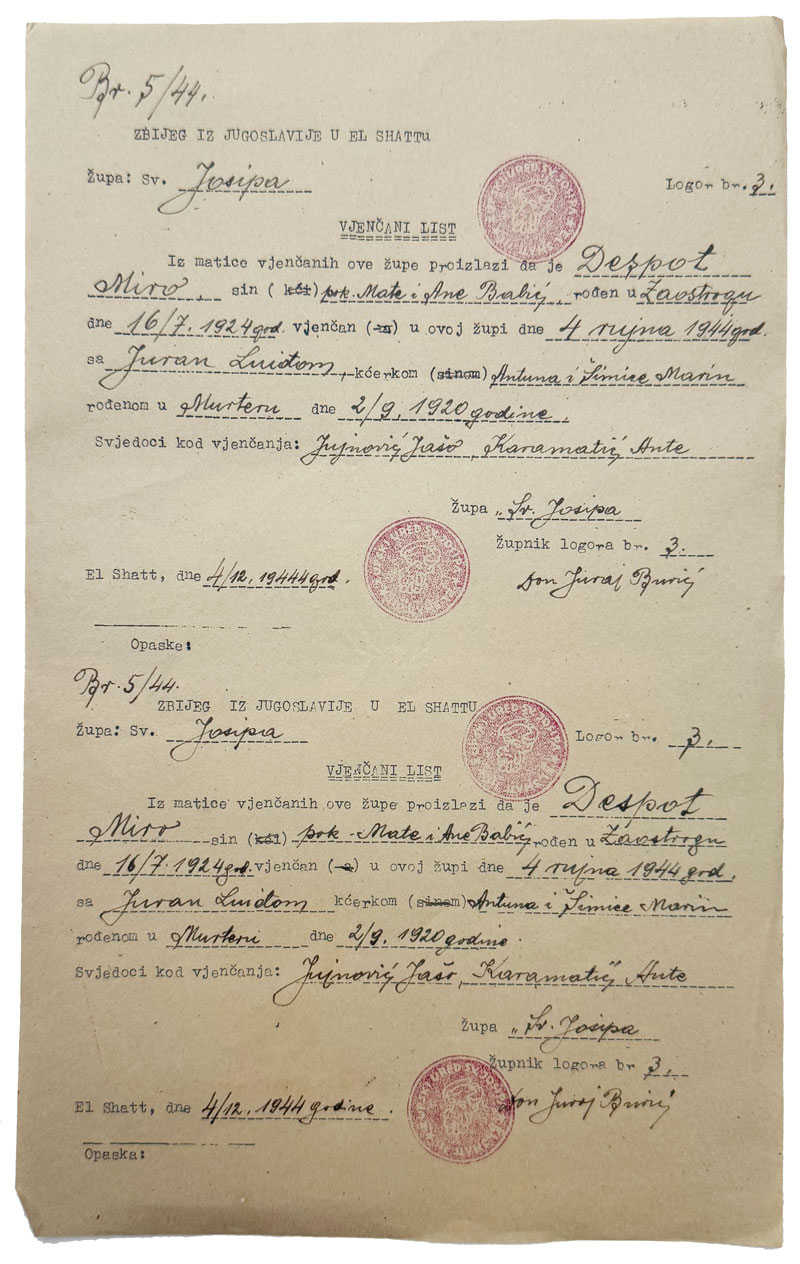 Br. 5/44.
ZBIJEG IZ JUGOSLAVIJE U EL SHATTu
Župa: Sv. Josipa Logor br. 3.
VJENČANI LIST
Iz matice vjenčanih ove župe proizlazi da je Despot
Miro, sin (kći) pok. Mate i Ane Babić, rođen u Zaostrogu
dne 16/7. 1924 god. vjenčan (-a) u ovoj župi dne 4 rujna 1944 god.
sa Juran Luiđom, kćerkom (sinom) Antuna i Šimice Marin
rođenom u Murteru dne 2/9. 1920 godine.
Svjedoci kod vjenčanja: Jujnović Jašo, Karamatić Ante
Župa „Sv. Josipa
Župnik logora br. 3.
El Shatt, dne 4/12. 19444 god. Don Juraj
Opaske:
Br. 5/44.
ZBIJEG IZ JUGOSLAVIJE U EL SHATTU
Župa: Sv. Josipa Logor br. 3.
VJENČANI LIST
Iz matice vjenčanih ove župe proizlazi da je Despot
Miro sin (kći) pok. Mate i Ane Babić, rođen u Zaostrogu
dne 16/7. 1924 god. vjenčan (-a) u ovoj župi dne 4 rujna 1944 god.
sa Juran Luiđom kćerkom (sinom) Antuna i Šimice Marin
rođenom u Murteru dne 2/9. 1920 godine.
Svjedoci kod vjenčanja: Jujnović Jašo, Karamatić Ante
Župa „Sv. Josipa
Župnik logora br 3.
El Shatt, dne 4/12. 1944 godine. Don Juraj
Opaska: